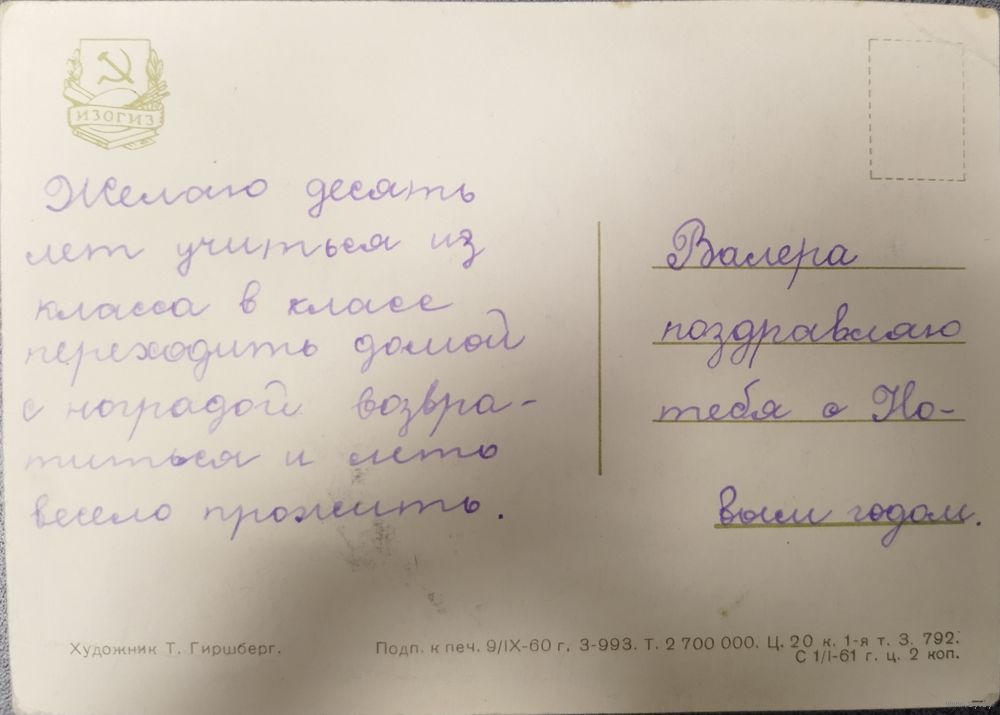 ИЗОГИЗ
Желаю десять
лет учиться из
класса в класс
переходить домой
с ноградой возвра-
титься и лето
весело прожить.
Валера
поздравляю
тебя с Но-
вым годом.
Художник Т. Гиршберг.
Подп. к печ. 9/IX-60 г. З-993. Т. 2 700 000. Ц. 20 к. 1-я т. З. 792.
С 1/I-61 г. ц. 2 коп.